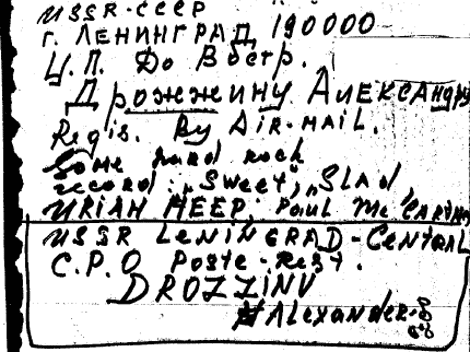 USSR-СССР
г. ЛЕНИНГРАД 190000-
Ц.П. До Востр.
Дрожжину Александру
Regis. By AIR-MAIL.
Some hard rock
record: „Sweet", „SLAd,
URIAH HEEP, PAUL Mc CARTN
USSR LENINGRAD-CENTRAL
C.P.O Poste-Rest.
DROZZINU
ALexander